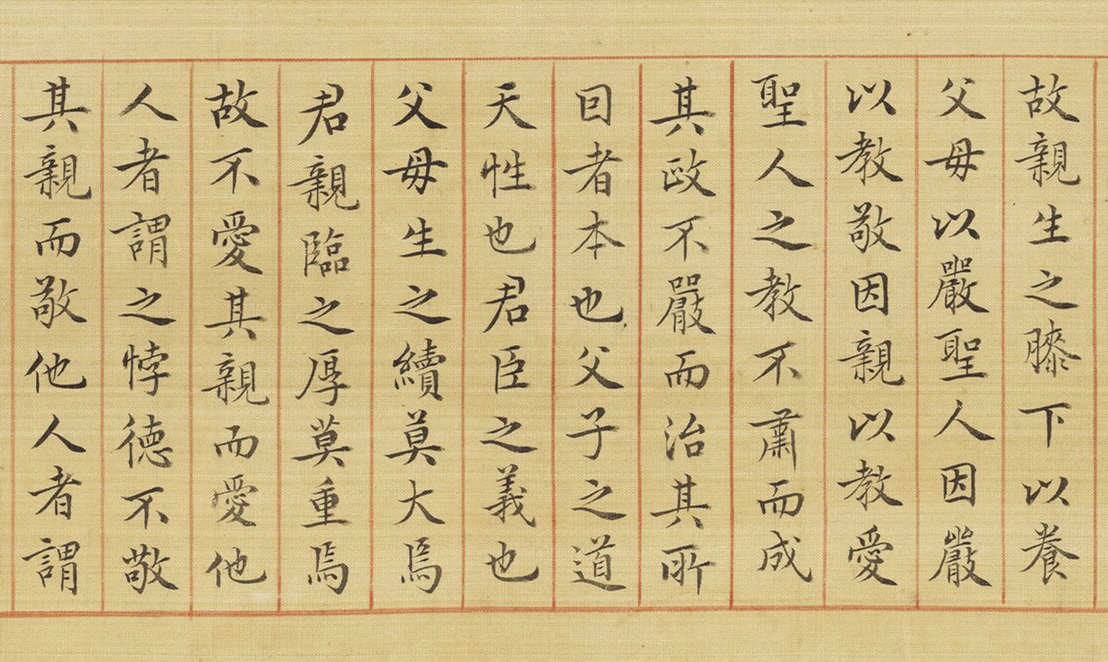 故親生之膝下以養
父母以嚴聖人因嚴
以教敬因親以教愛
聖人之教不肅而成
其政不嚴而治其所
因者本也父子之道
天性也君臣之義也
父母生之續莫大焉
君親臨之厚莫重焉
故不愛其親而愛他
人者謂之悖德不敬
其親而敬他人者謂